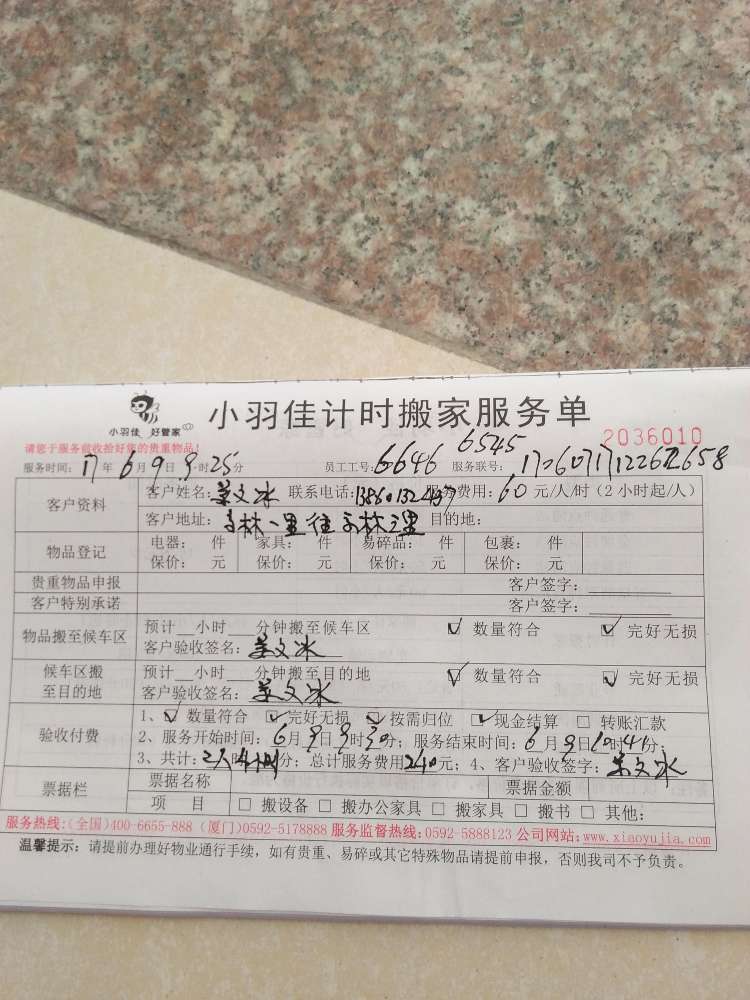 小羽佳 好管家
小羽佳计时搬家服务单
2036010
请您于服务前收拾好您的贵重物品!
6545
服务时间: 17年 6月 9日 9时25分 员工工号: 6646 服务联号:
客户资料 客户姓名: 姜文冰 联系电话: 服务费用: 60 元/人/时(2小时起/人)
客户地址: 目的地:
物品登记 电器: 件 家具: 件 易碎品: 件 包裹: 件
保价: 元 保价: 元 保价: 元 保价: 元
贵重物品申报 客户签字:
客户特别承诺 客户签字:
物品搬至候车区 预计__小时__分钟搬至候车区 ☑ 数量符合 ☑ 完好无损
客户验收签名: 姜文冰
候车区搬至目的地 预计__小时__分钟搬至目的地 ☑ 数量符合 ☑ 完好无损
客户验收签名: 姜文冰
验收付费 1、☑ 数量符合 ☑ 完好无损 ☑ 按需归位 ☑ 现金结算 □ 转账汇款
2、服务开始时间: 6月 9日 9时30分; 服务结束时间: 6月 9日 10时41分;
3、共计: 2人 时 分; 总计服务费用 240 元; 4、客户验收签字: 姜文冰
票据栏 票据名称 票据金额
项 目 □ 搬设备 □ 搬办公家具 □ 搬家具 □ 搬书 □ 其他:
服务热线:(全国)400-6655-888 (厦门)0592-5178888 服务监督热线:0592-5888123 公司网站:www.xiaoyujia.com
温馨提示: 请提前办理好物业通行手续, 如有贵重、易碎或其它特殊物品请提前申报, 否则我司不予负责。